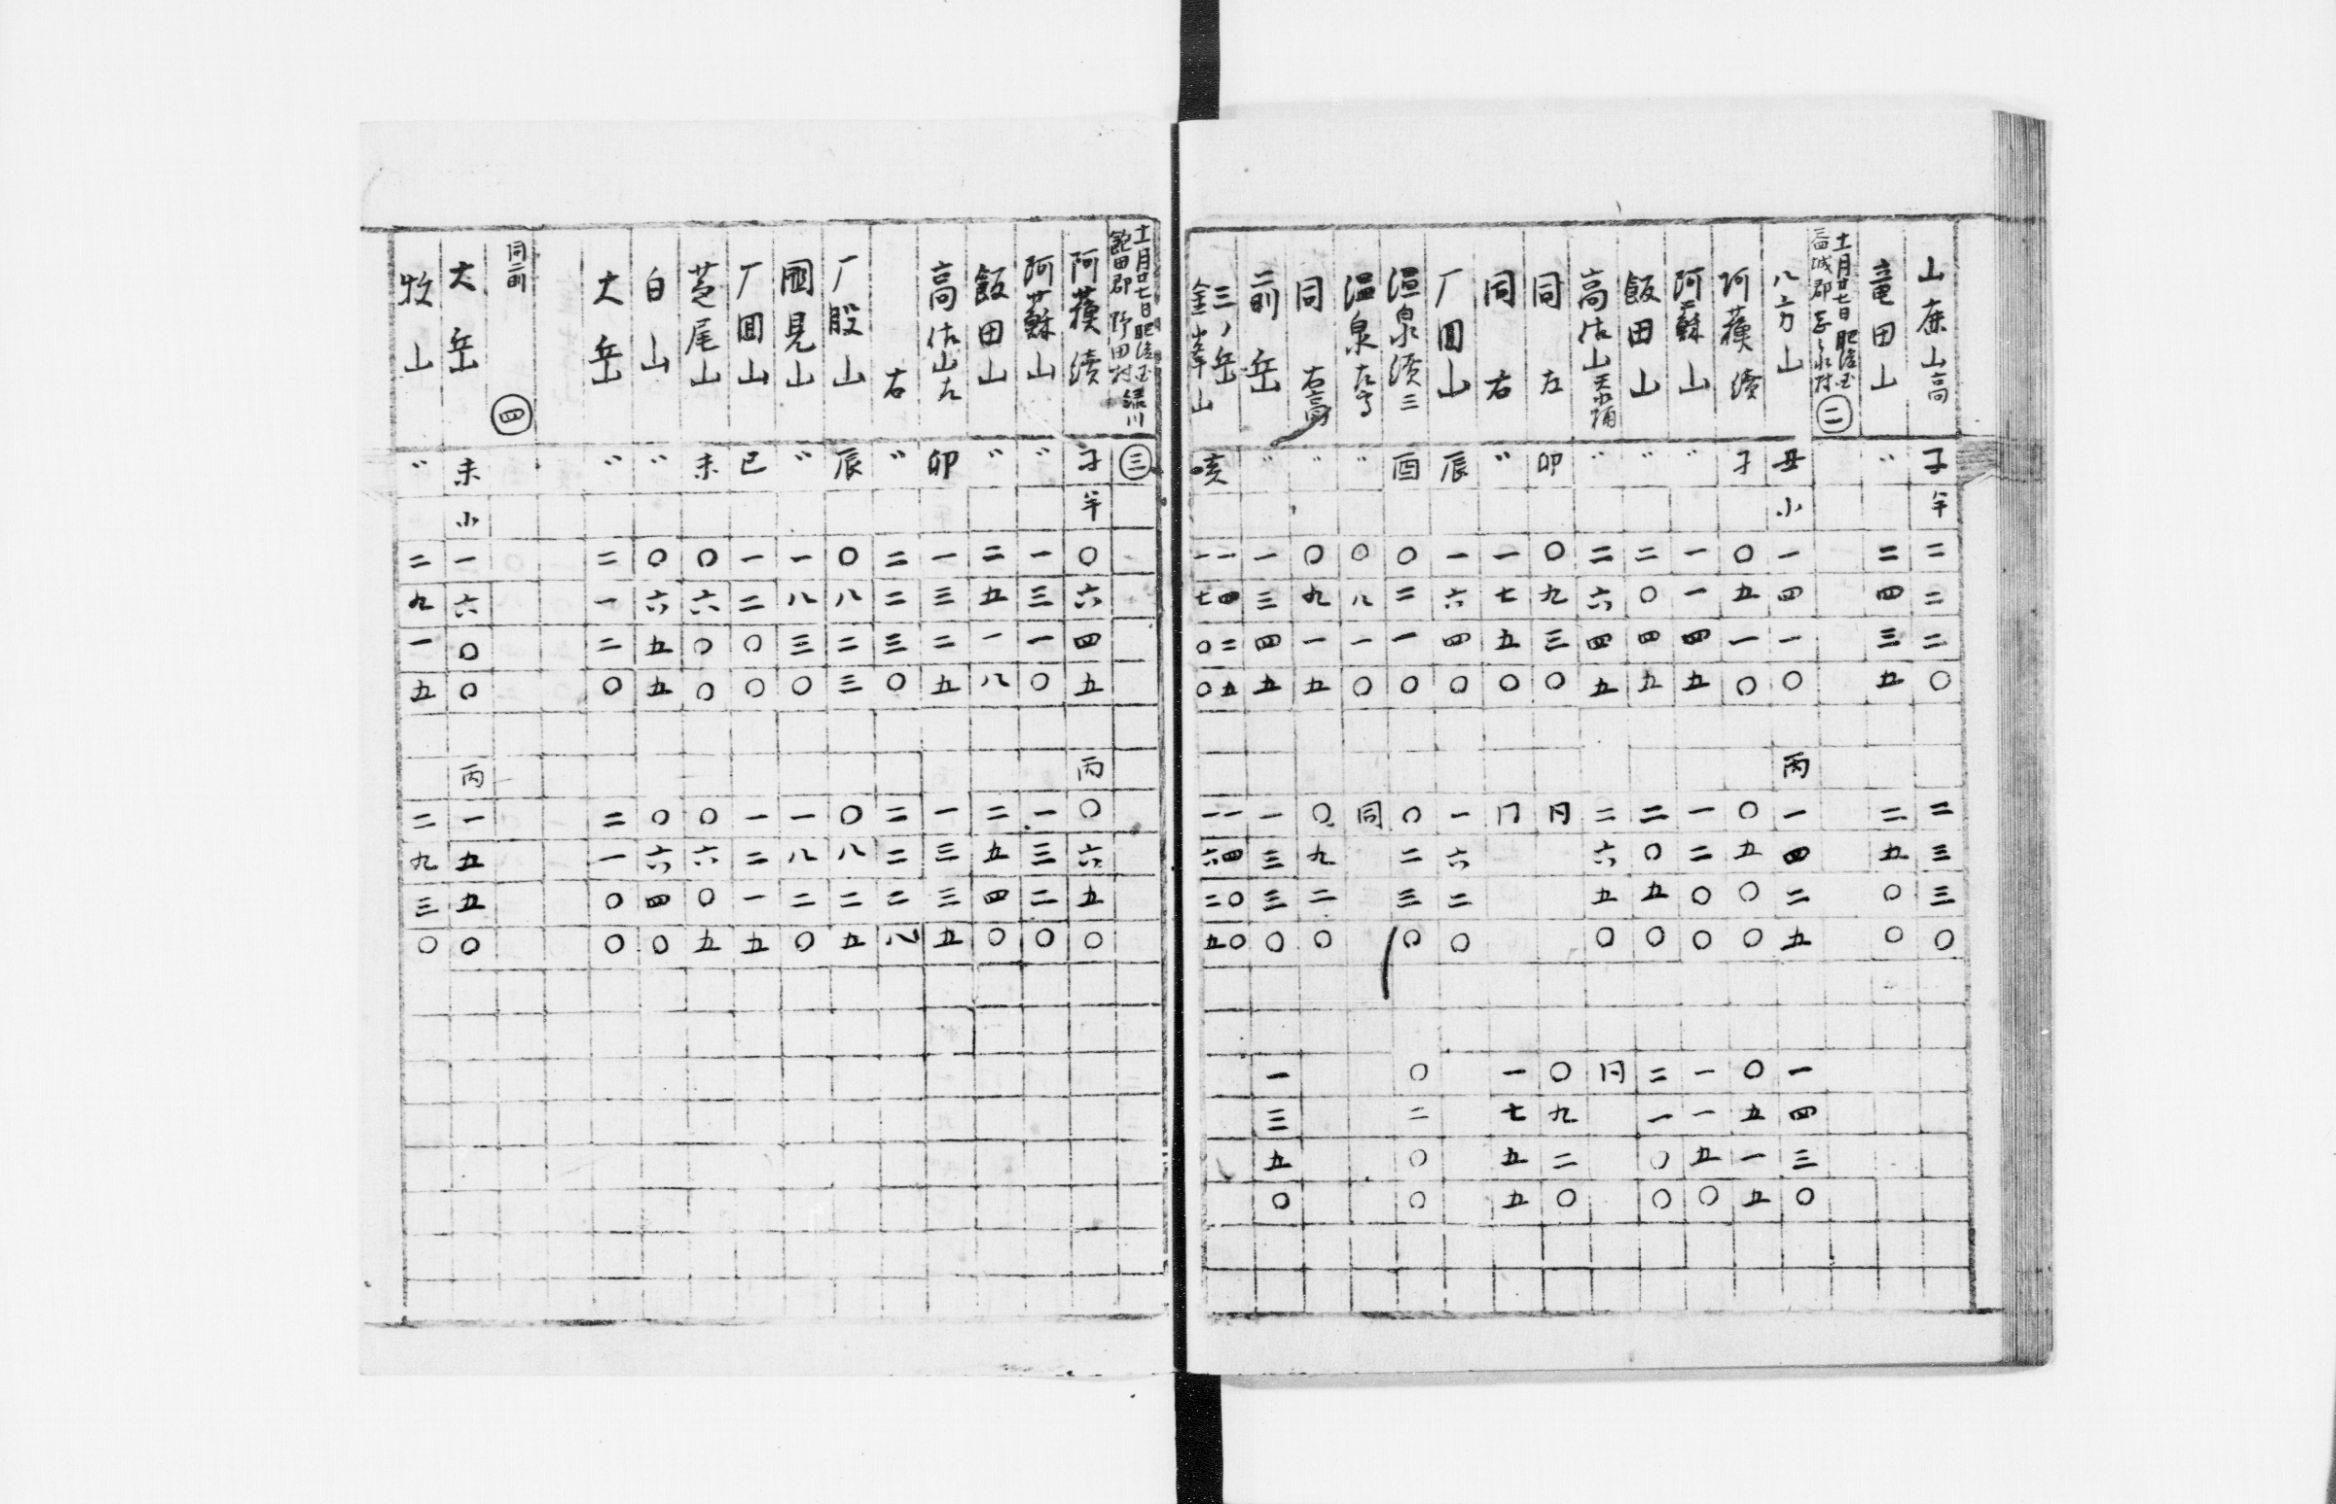 山鹿山高 子半 二二二〇 二三三〇
竜田山 〃 二四三五 二五〇〇
十一月廿七日肥後国
益城郡 永村 二
八方山 丑小 一四一〇 丙 一四二五 一四三〇
阿蘓續 子 〇五一〇 〇五〇〇 〇五一五
阿蘇山 〃 一一四五 一二〇〇 一一五〇
飯田山 〃 二〇四五 二〇五〇 二一〇〇
高佐山 〃 二六四五 二六五〇 同
同左 卯 〇九三〇 同 〇九二〇
同右 〃 一七五〇 同 一七五五
厂回山 辰 一六四〇 一六二〇
温泉續三 酉 〇二一〇 〇二三〇 〇二〇〇
温泉 〃 〇八一〇 同
同右高 〃 〇九一五 〇九二〇
二ノ岳 〃 一三四五 一三三〇 一三五〇
三ノ岳 亥 一四二五 一四〇〇
金峯山 〃 一七〇〇 一六二五
十一月廿七日肥後国緑川
飽田郡野田村 三
阿蘓續 子半 〇六四五 丙 〇六五〇
阿蘇山 〃 一三一〇 一三二〇
飯田山 〃 二五一八 二五四〇
高佐山左 卯 一三二五 一三三五
右 〃 二二三〇 二二二八
厂股山 辰 〇八二三 〇八二五
國見山 〃 一八三〇 一八二〇
厂回山 巳 一二〇〇 一二一五
芝尾山 未 〇六〇〇 〇六〇五
白山 〃 〇六五五 〇六四〇
大岳 〃 二一二〇 二一〇〇
同所前 四
大岳 未小 一六〇〇 丙 一五五〇
牧山 〃 二九一五 二九三〇